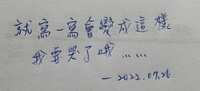 就寫一寫會變成這樣
我要哭了哦……
—2022.07.26